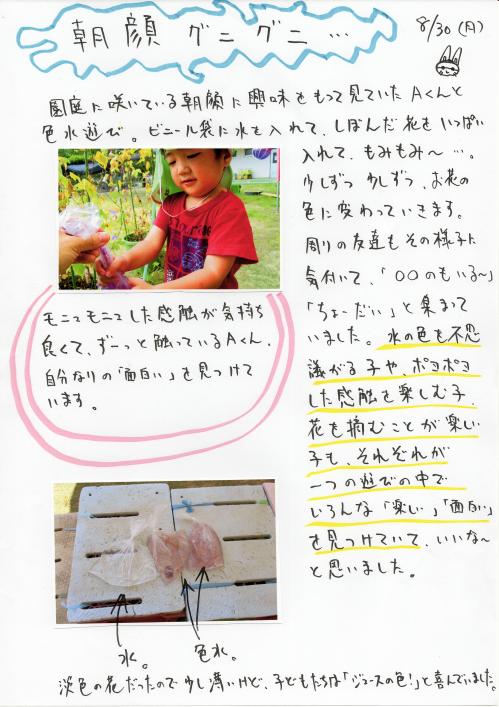 朝顔 グニグニ…
8/30(月)
園庭に咲いている朝顔に興味をもって見ていたAくんと
色水遊び。ビニール袋に水を入れて、しぼんだ花をいっぱい
入れて、もみもみ～…。
少しずつ少しずつ、お花の
色に変わっていきます。
周りの友達もその様子に
気付いて、「〇〇のもいる～」
「ちょーだい」と集まって
いました。水の色も不思
議がる子や、ポヨポヨ
した感触を楽しむ子、
花を摘むことが楽しい
子も、それぞれが
一つの遊びの中で
いろんな「楽しい」「面白い」
を見つけていて、いいな～
と思いました。
モニュモニュした感触が気持ち
良くて、ずーっと触っているAくん。
自分なりの「面白い」を見つけて
います。
水。
色水。
淡色の花だったので少し薄いけど、子どもたちは「ジュースの色!」と喜んでいました。